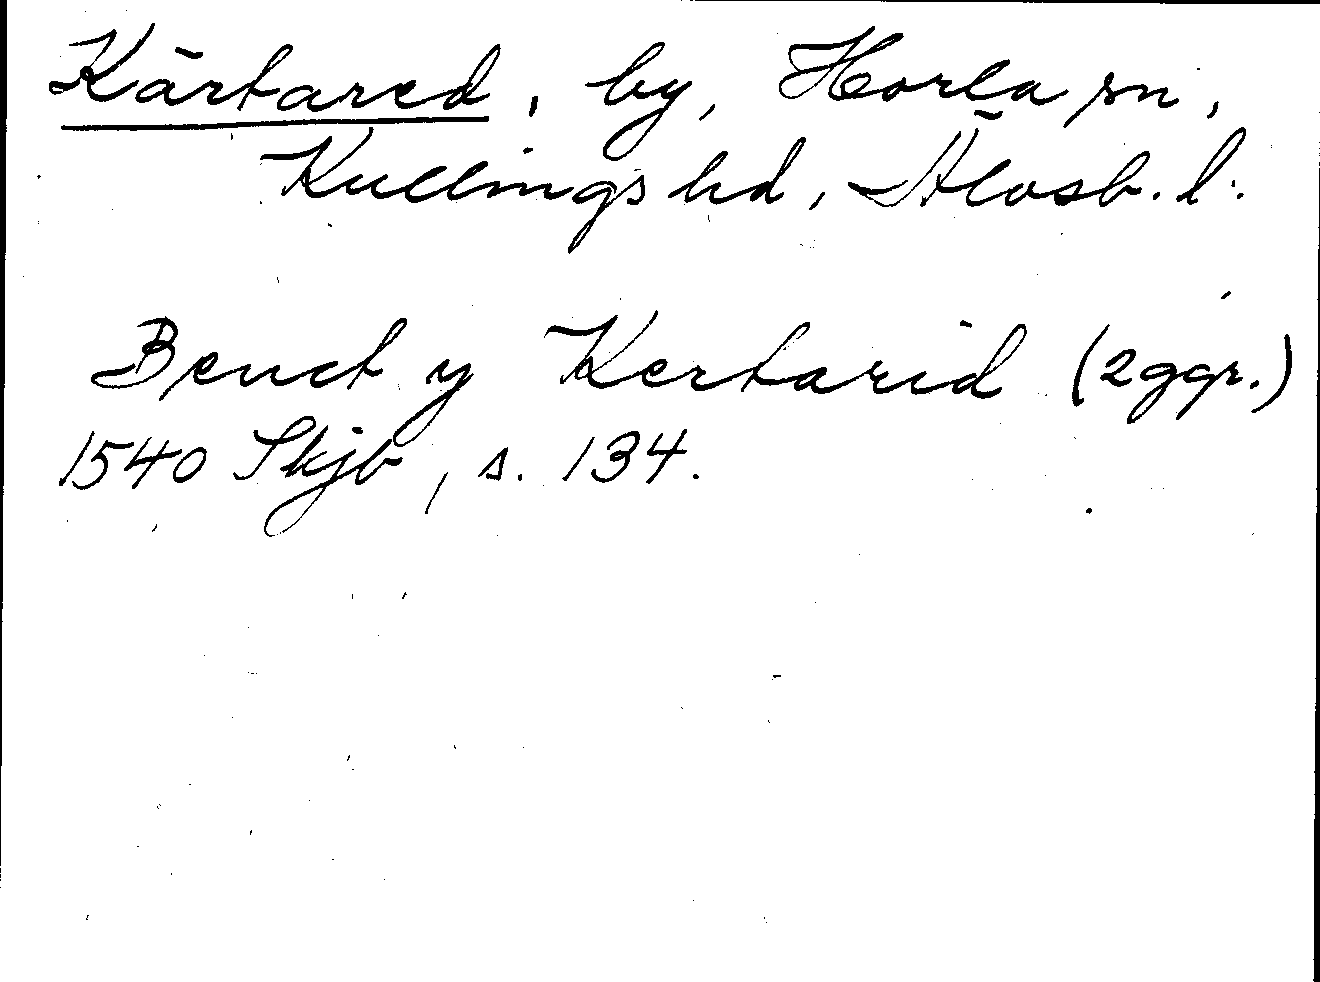 Kärtared, by, Horla sn,
Kullings hd, Älvsb. l.
Benct y Kertarid (2ggr.)
1540 Skjb, s. 134.